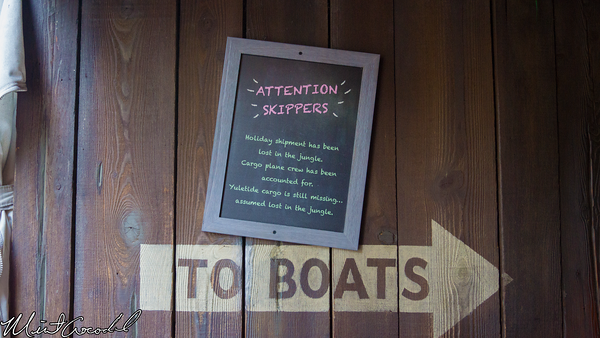 ATTENTION
SKIPPERS
Holiday shipment has been
lost in the jungle.
Cargo plane crew has been
accounted for.
Yuletide cargo is still missing...
assumed lost in the jungle.
TO BOATS
Mint Crocodile